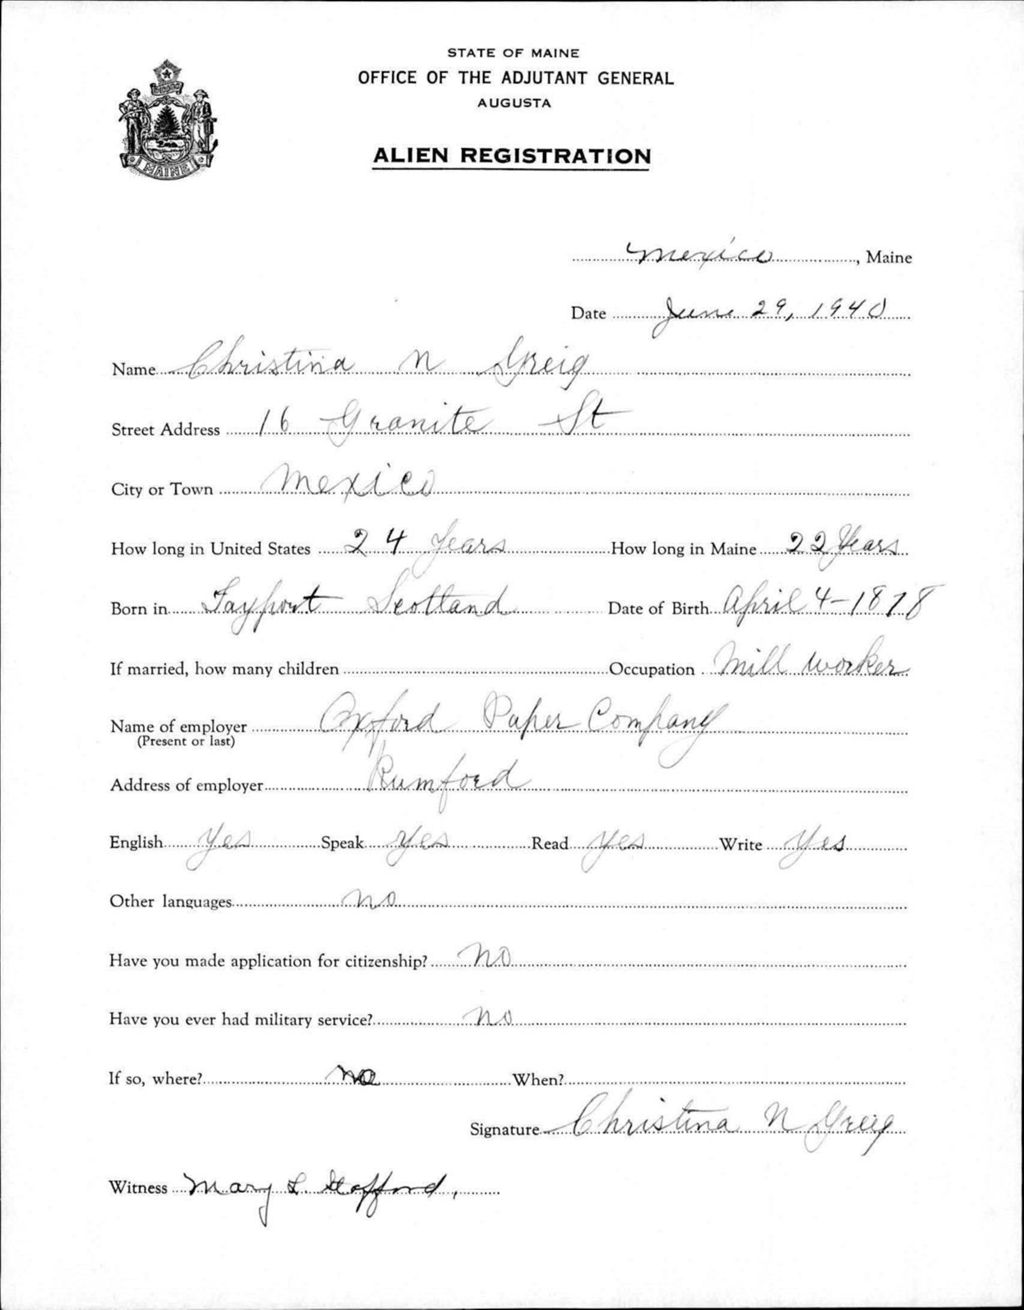 STATE OF MAINE
OFFICE OF THE ADJUTANT GENERAL
AUGUSTA
ALIEN REGISTRATION
MAINE
Mexico, Maine
Date June 29, 1940
Name Christina N Greig
Street Address 16 Granite St
City or Town Mexico
How long in United States 24 Years How long in Maine 22 Years
Born in Tayport Scotland Date of Birth April 4-1878
If married, how many children Occupation Mill worker
Name of employer Oxford Paper Company
(Present or last)
Address of employer Rumford
English Yes Speak Yes Read Yes Write Yes
Other languages no
Have you made application for citizenship? NO
Have you ever had military service? No
If so, where? no When?
Signature Christina N Greig
Witness Mary L. Stafford,